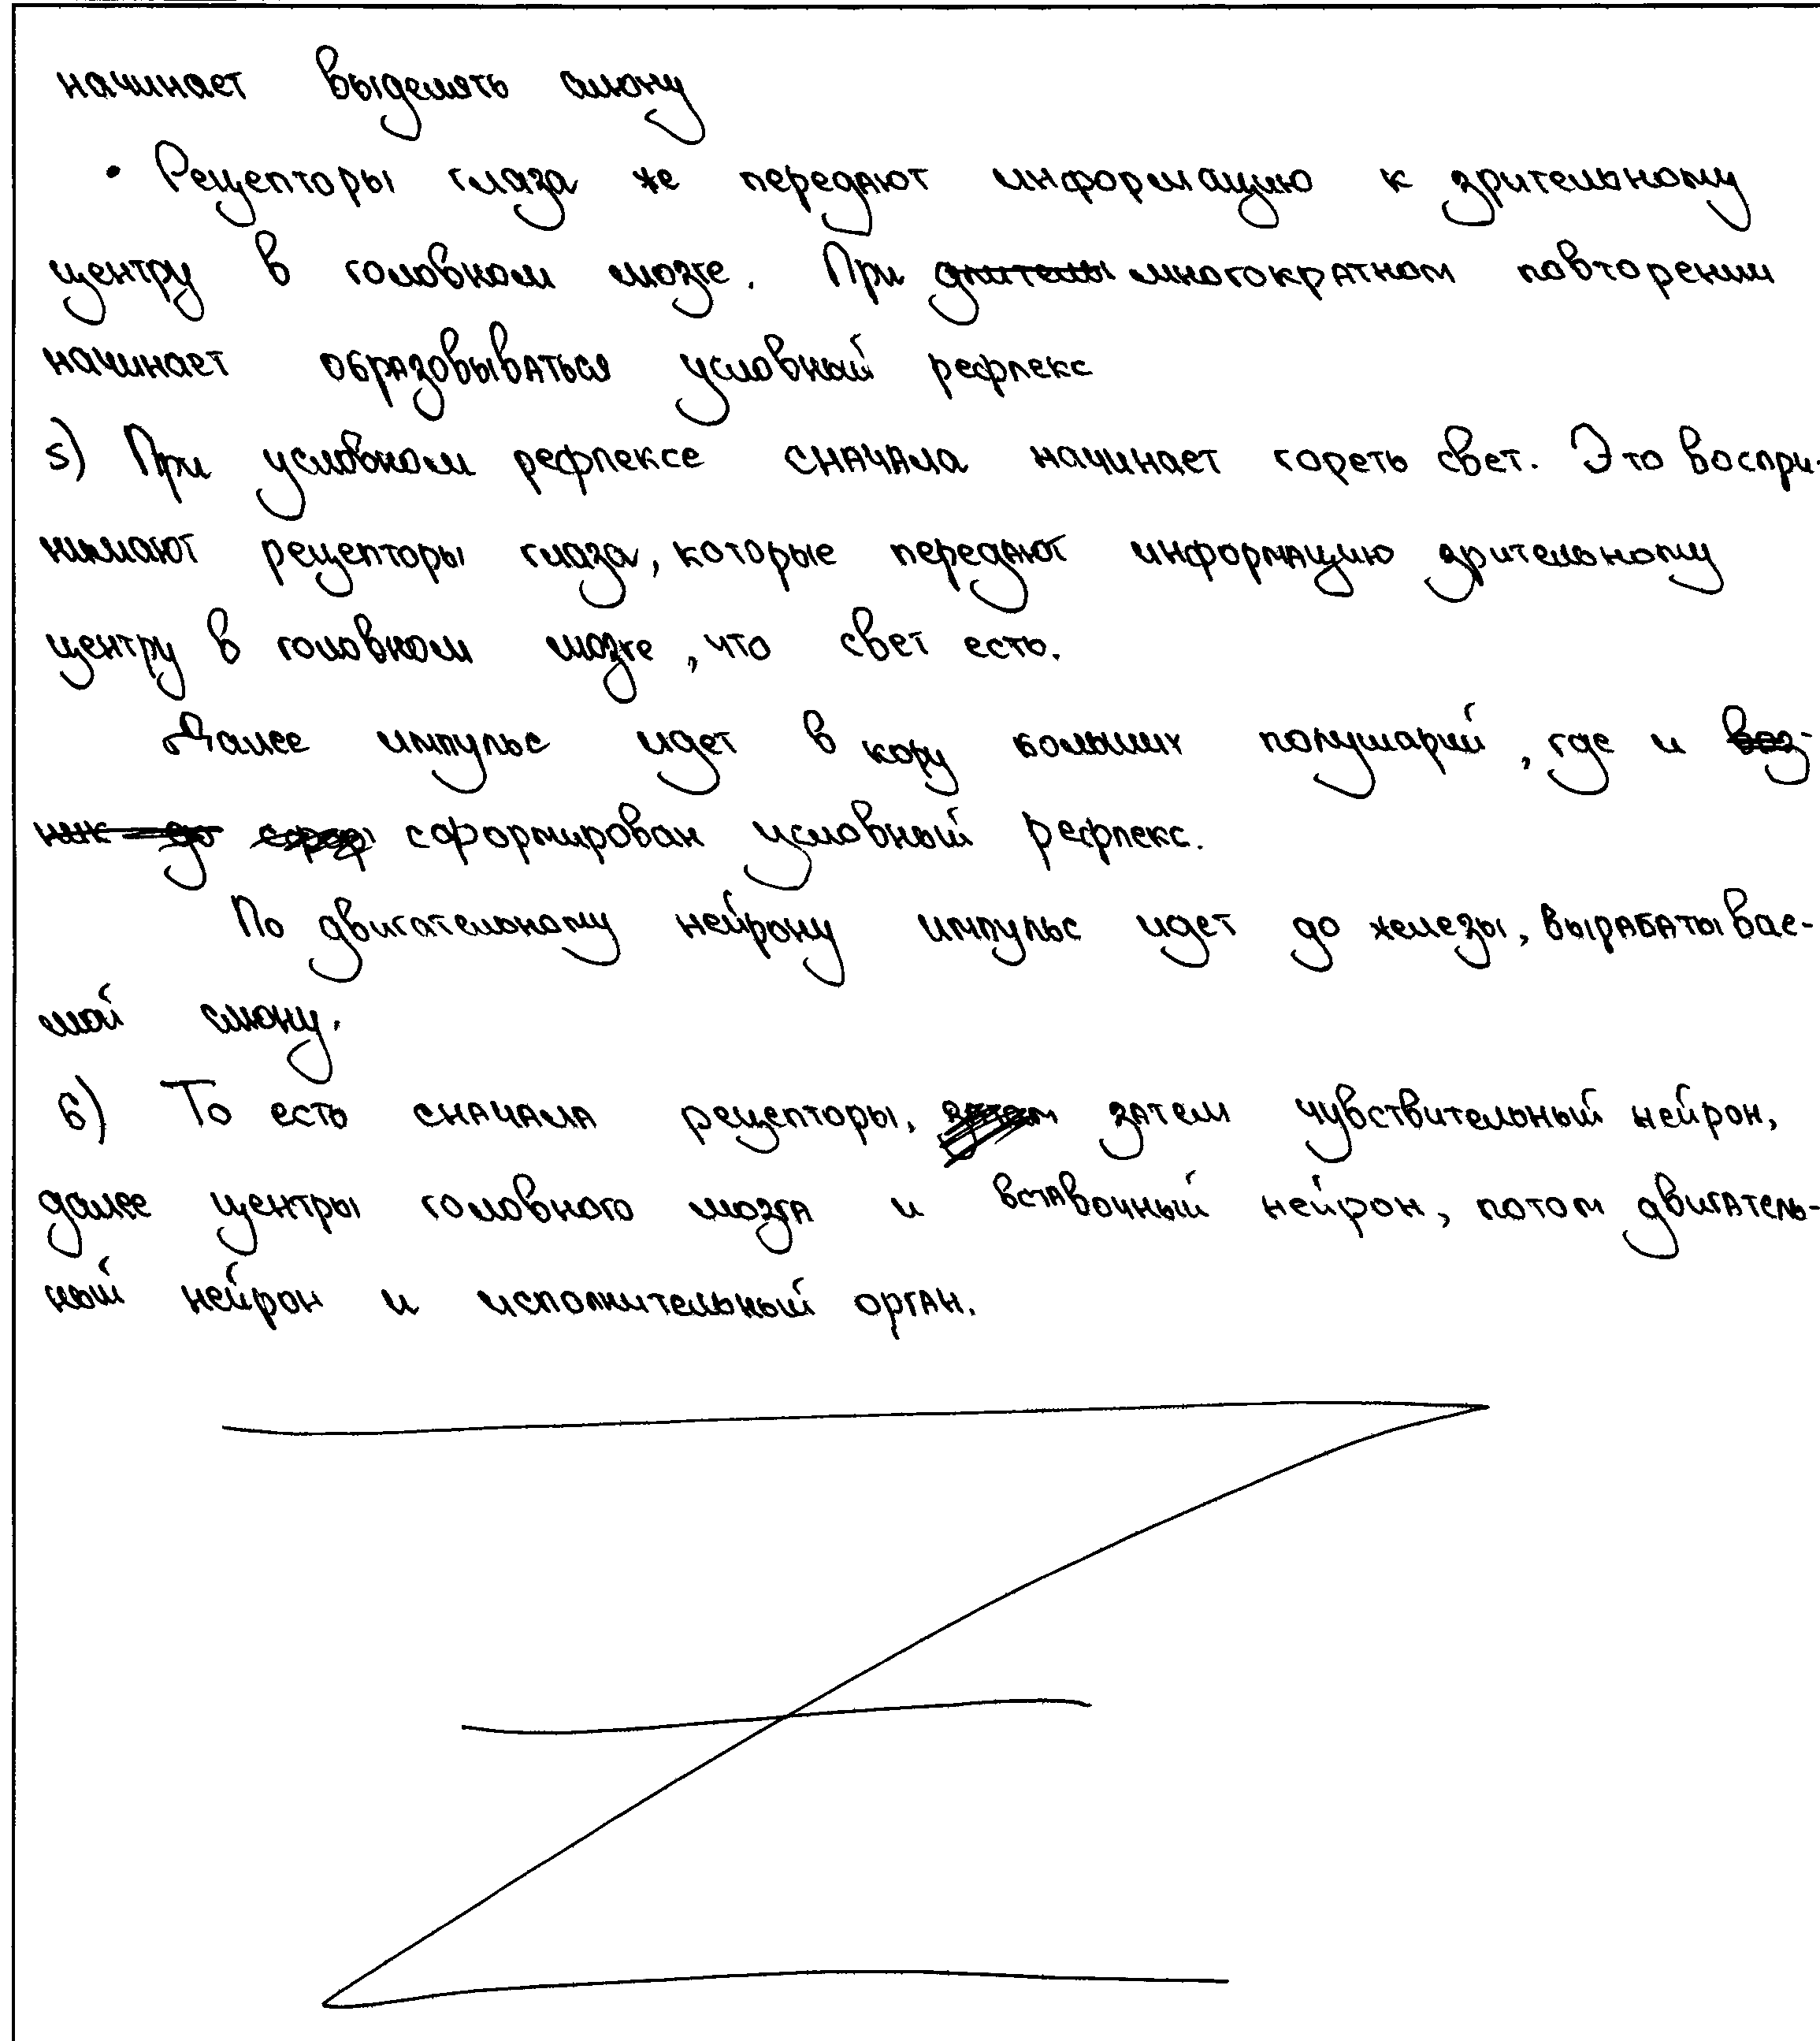 начинает выделять слюну
• Рецепторы глаза же передают информацию к зрительному
центру в головном мозге. При длительн многократном повторении
начинает образовываться условный рефлекс
5) При условном рефлексе сначала начинает гореть свет. Это воспри-
нимают рецепторы глаза, которые передают информацию зрительному
центру в головном мозге, что свет есть.
Далее импульс идет в кору больших полушарий, где и воз-
ник до сформирован условный рефлекс.
По двигательному нейрону импульс идет до железы, вырабатывае-
мой слюну.
6) То есть сначала рецепторы, затем чувствительный нейрон,
далее центры головного мозга и вставочный нейрон, потом двигатель-
ный нейрон и исполнительный орган.